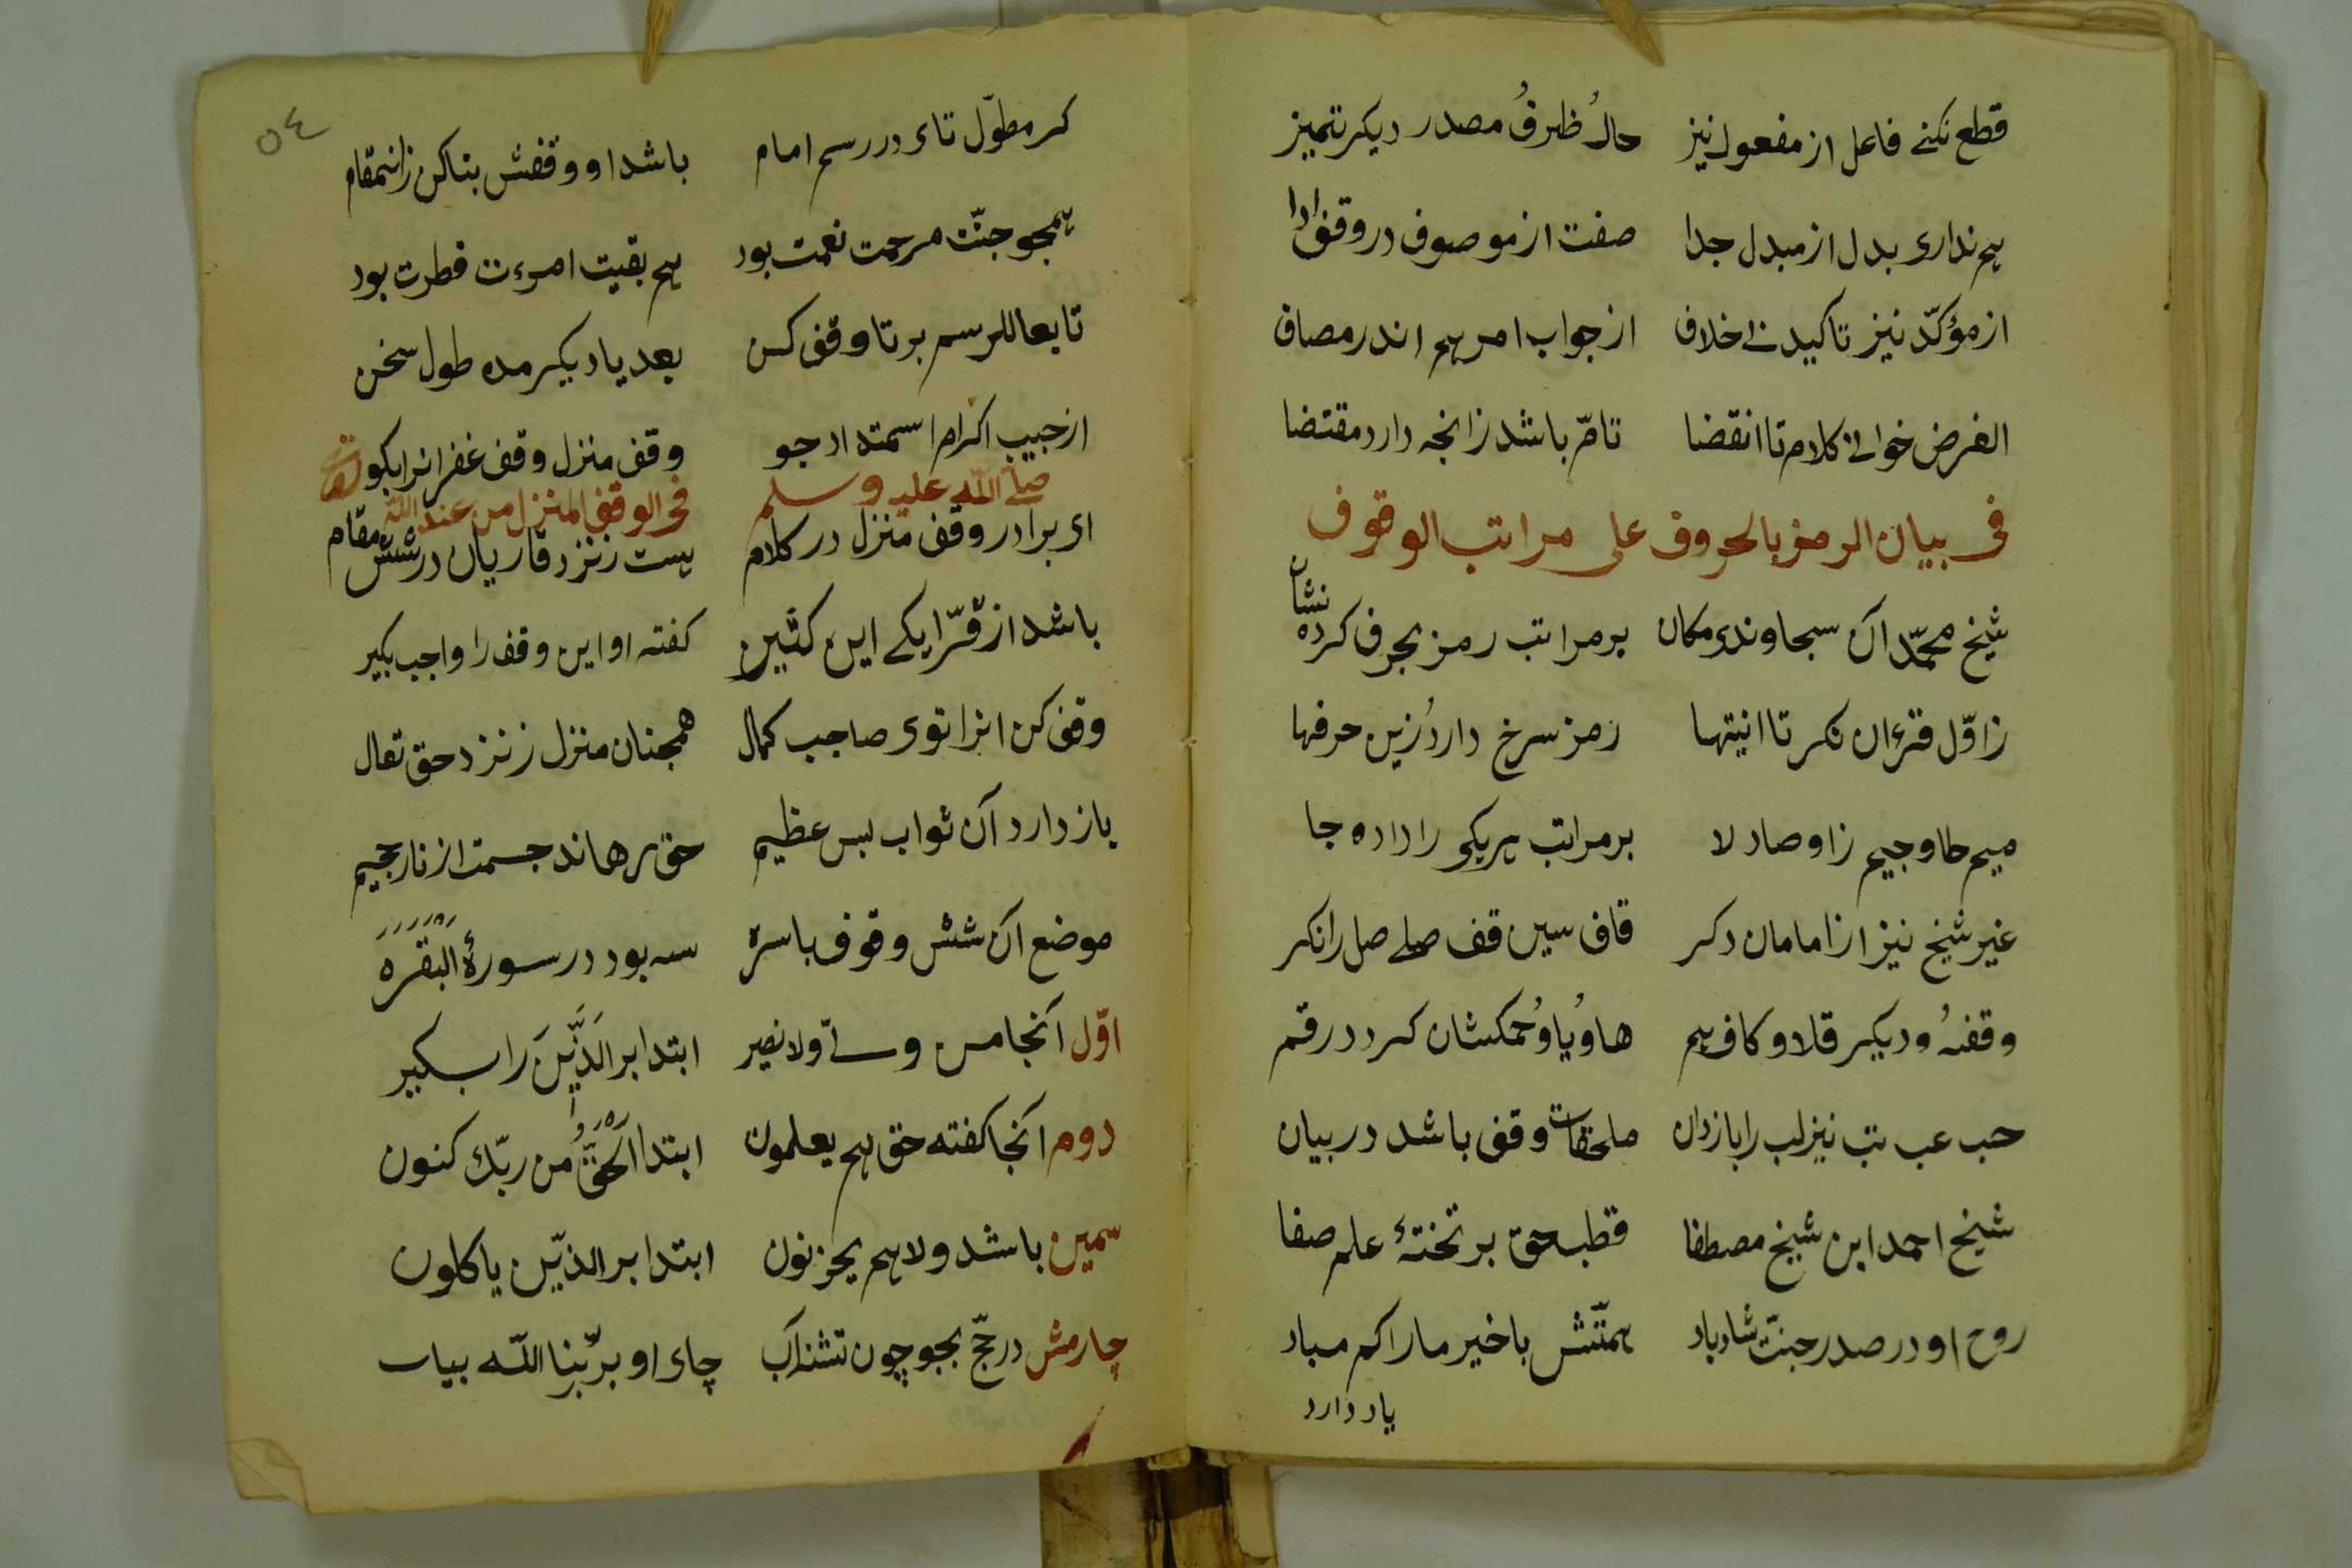 قطع نکنے فاعل از مفعول نیز حالُ ظرفُ مصدر دیکر تمیز
ہم نداری بدل از مبدل جدا صفت از موصوف در وقف ادا
از مؤکّد نیز تاکید نے خلاف از جواب امر ہم اندر مصاف
الغرض خوانے کلام تا انقضا تامّ باشد زانجه دارد مقتضا
فی بیان الرمز بالحروف علی مراتب الوقوف
شیخ محمّد آن سجاوندی مکان بر مراتب رمز بحرف کرده نشان
ز اوّل قرءان نکر تا انیتها رمز سرخ داردُ زین حرفها
میم طا و جیم زا و صاد لا بر مراتب ہریکی را داده جا
غیر شیخ نیز از امامان دکر قاف سین قف صلے صل را نکر
وقفهُ و دیکر قلا و کاف ہم هاوُ یاوُ حمکشان کرد در رقم
حب عب تب نیز لب را باز دان ملحقات وقف باشد در بیان
شیخ احمد ابن شیخ مصطفا قطب حق بر تختهٔ علم صفا
روح او در صدر جنّت شاد باد ہمّتش با خیر ما را کم مباد
یاد دارد
٥٤
کر مطوّل تای در رسم امام باشد او وقفش بتا کن زانمقام
ہمجو جنّت مرحمت نعمت بود ہم بقیت امرءت فطرت بود
تابعا للرسم بر تا وقف کن بعد یا دیکر مده طول سخن
از حبیب اکرام استمداد جو وقف منزل وقف غفرانرا بکو
صلّے اللّٰه علیه وسلم فی الوقف المنزل من عند اللّٰه
ای برادر وقف منزل در کلام ہست زنزد قاریان در شش مقام
باشد از قرّا یکے ابن کثیر کفته او این وقف را واجب بکیر
وقف کن انرا توی صاحب کمال همجنان منزل زنزد حق تعال
باز دارد آن ثواب بس عظیم حق برهاند جسمت از نار جحیم
موضع آن شش وقوف باسره سه بود در سورۀ البقره
اوّل آنجا من ولیّ ولا نصیر ابتدا بر الَّذینَ را بکیر
دوم آنجا کفته حق ہم یعلمون ابتدا الحقُّ من ربّك کنون
سیّمین باشد ولا ہم یحزنون ابتدا بر الذّین یاکلون
چارمش در حجّ بجو چون تشنه آب جای او بر ربّنا اللّه بیاب